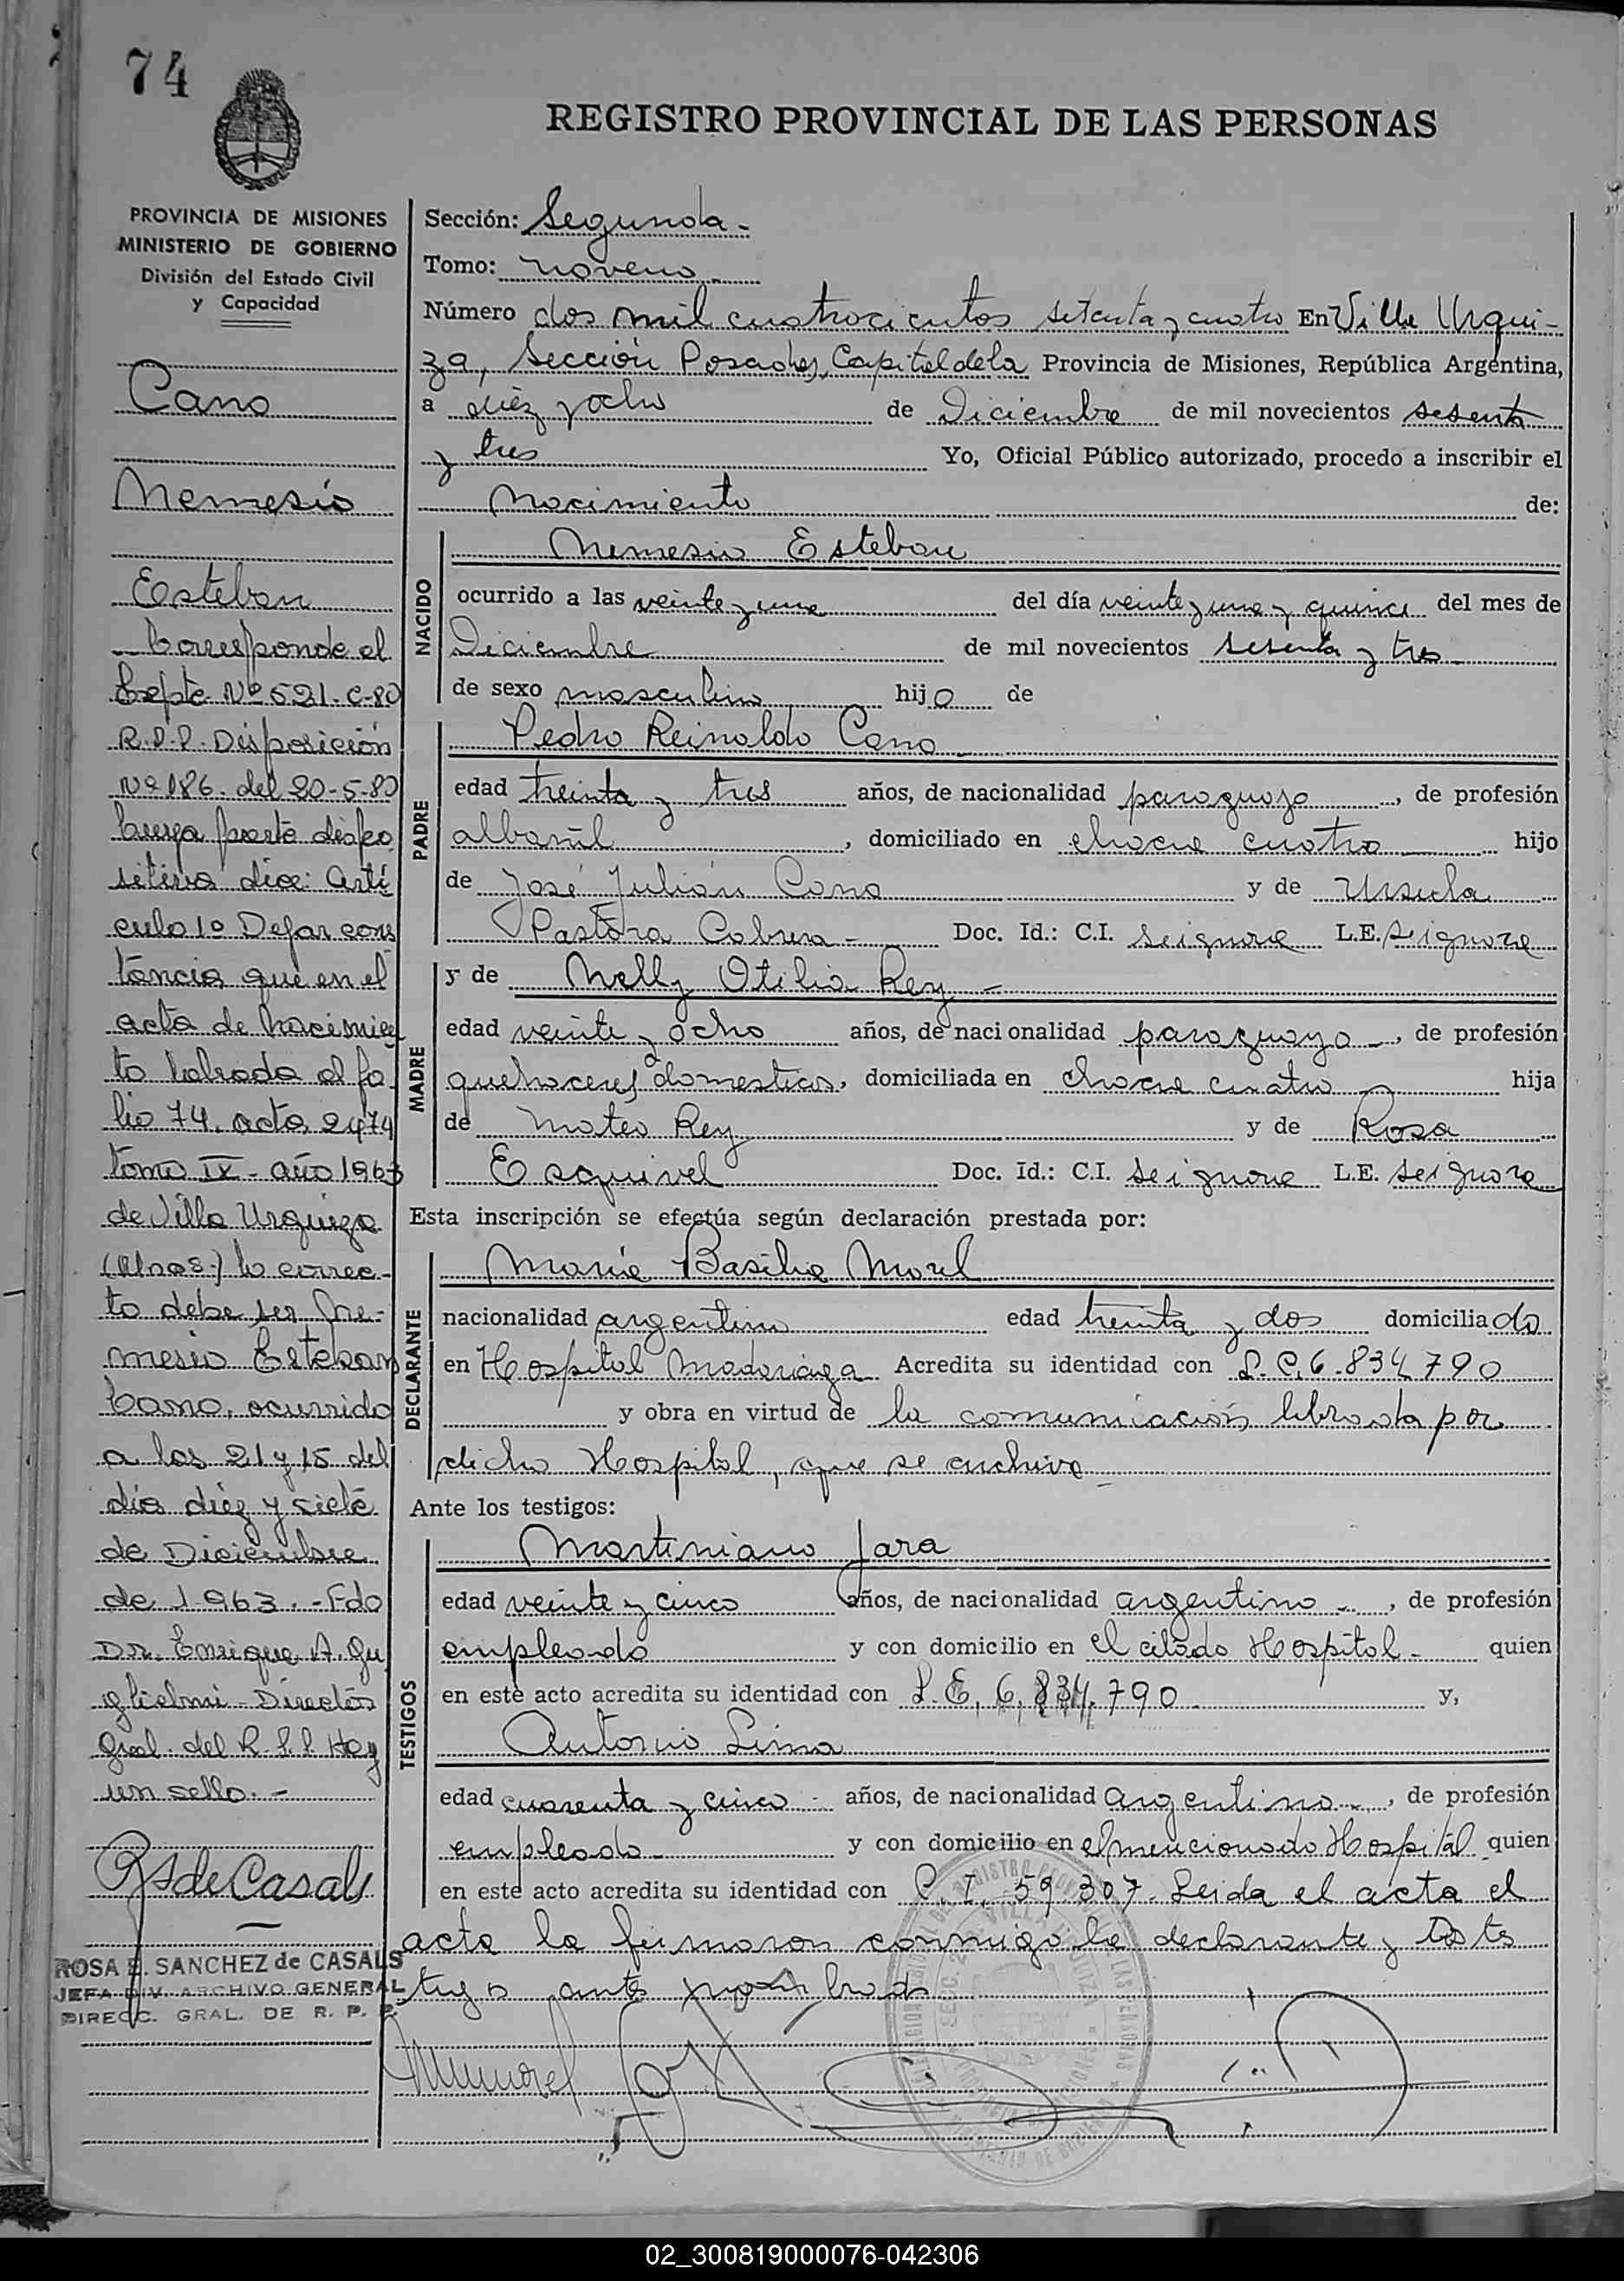 74
REGISTRO PROVINCIAL DE LAS PERSONAS
PROVINCIA DE MISIONES
MINISTERIO DE GOBIERNO
División del Estado Civil
y Capacidad
Cano
Nemesio
Esteban
Corresponde al
Expte Nº 521-C-80
R.P.P. Disposición
Nº 186. del 20-5-80
cuya parte dispo
sitiva dice: Artí
culo 1º Dejar cons
tancia que en el
acta de nacimien
to labrada al fo-
lio 74, acta 2474
tomo IX - año 1963
de Villa Urquiza
(Mnes.) lo correc-
to debe ser Ne-
mesio Esteban
Cano, ocurrido
a las 21 y 15 del
día diez y siete
de Diciembre
de 1963. - Fdo
Dr. Enrique A. Gu
glielmi Director
Gral. del R.P.P. Hay
un sello. -
RSdeCasals
ROSA E. SANCHEZ de CASALS
JEFA DIV. ARCHIVO GENERAL
DIRECC. GRAL. DE R. P. P.
Sección: Segunda -
Tomo: noveno
Número dos mil cuatrocientos setenta y cuatro En Villa Urqui-
za, Sección Posadas, Capital de la Provincia de Misiones, República Argentina,
a diez y ocho de Diciembre de mil novecientos sesenta
y tres Yo, Oficial Público autorizado, procedo a inscribir el
Nacimiento de:
NACIDO
Nemesio Esteban
ocurrido a las veinte y una del día veinte y una y quince del mes de
Diciembre de mil novecientos sesenta y tres
de sexo masculino hijo de
PADRE
Pedro Reinaldo Cano
edad treinta y tres años, de nacionalidad paraguayo, de profesión
albañil, domiciliado en chacra cuatro hijo
de José Julián Cano y de Ursula
Pastora Cabrera - Doc. Id.: C.I. se ignora L.E. se ignora
MADRE
y de Nelly Otilia Rey -
edad veinte y ocho años, de nacionalidad paraguaya, de profesión
quehaceres domesticos, domiciliada en chacra cuatro hija
de Mateo Rey y de Rosa
Esquivel Doc. Id.: C.I. se ignora L.E. se ignora
Esta inscripción se efectúa según declaración prestada por:
DECLARANTE
María Basilia Morel
nacionalidad argentina edad treinta y dos domiciliada
en Hospital Madariaga Acredita su identidad con L.C. 6.834.790
y obra en virtud de la comunicación librada por
dicho Hospital, que se archiva
Ante los testigos:
TESTIGOS
Martiniano Jara
edad veinte y cinco años, de nacionalidad argentino -, de profesión
empleado y con domicilio en el citado Hospital - quien
en este acto acredita su identidad con L.E. 6.834.790 y,
Antonio Lima
edad cuarenta y cinco - años, de nacionalidad argentino -, de profesión
empleado - y con domicilio en el mencionado Hospital quien
en este acto acredita su identidad con C.I. 59 307. Leida el acta el
acta la firmaron conmigo la declarante y los tes
tigos antes
02_300819000076-042306